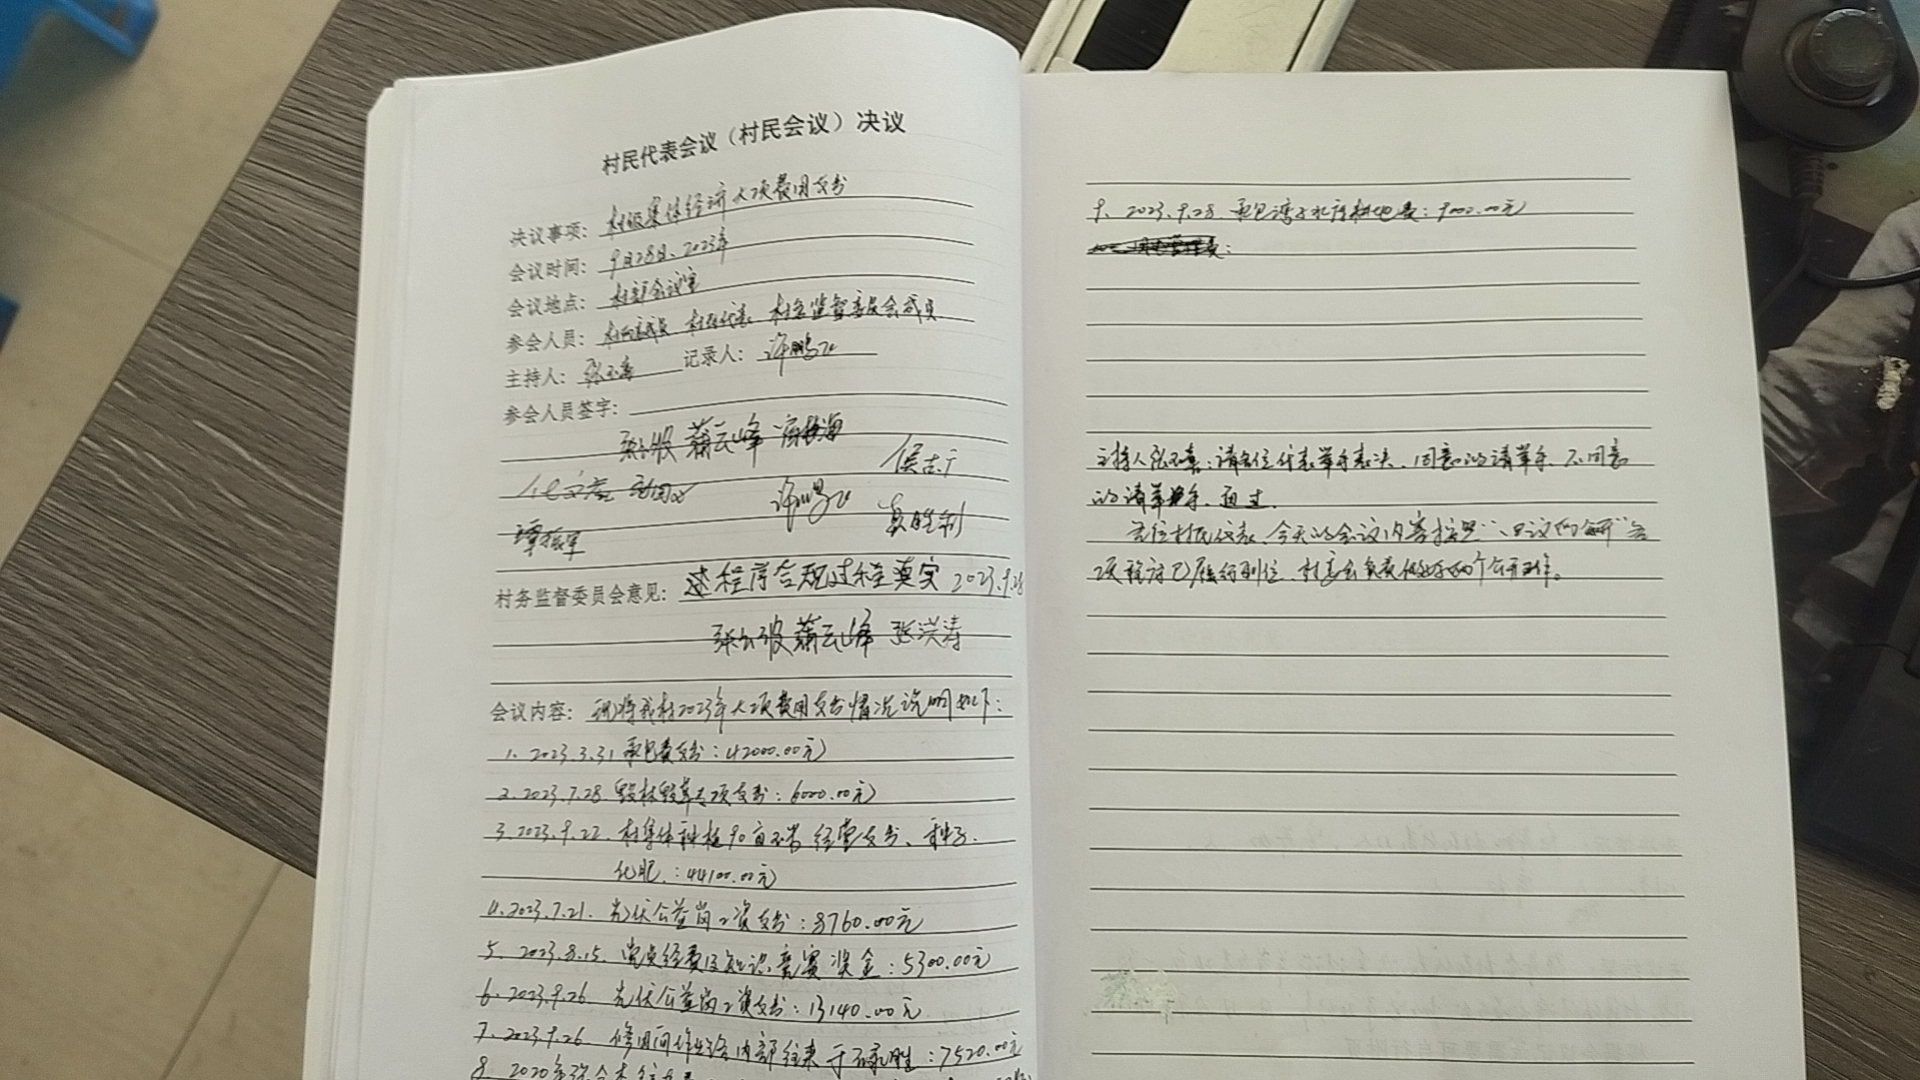 村民代表会议（村民会议）决议
决议事项：村级集体经济大项费用支出
会议时间：9月28日、2023年
会议地点：村部会议室
参会人员：村两委成员 村民代表 村务监督委员会成员
主持人： 记录人：许鹏飞
参会人员签字：
蒲云峰
侯志广
许鹏飞
谭振军
村务监督委员会意见：述程序合规过程真实 2023.9.28
蒲云峰 张洪涛
会议内容：现将我村2023年大项费用支出情况说明如下：
1. 2023.3.31 承包费支出：42000.00元
2. 2023.7.28. 毁林毁草专项支出：6000.00元
3. 2023.9.22. 村集体种植90亩玉米经营支出、种子.
化肥.：44100.00元
4. 2023.7.21. 光伏公益岗工资支出：8760.00元
5. 2023.8.15. 党员经费及知识竞赛奖金：5300.00元
6. 2023.9.26. 光伏公益岗工资支出：13140.00元
7. 2023.9.26. 修田间作业路内部往来 胜：7520.00元
8. 2020年
9. 2023.9.28. 承包 地费：9000.00元
主持人 ：请各位代表举手表决、同意的请举手、不同意
的请举手、通过.
各位村民代表、今天的会议内容按照“四议两公开”各
项程序已履行到位、村委会负责做好两个公开工作。